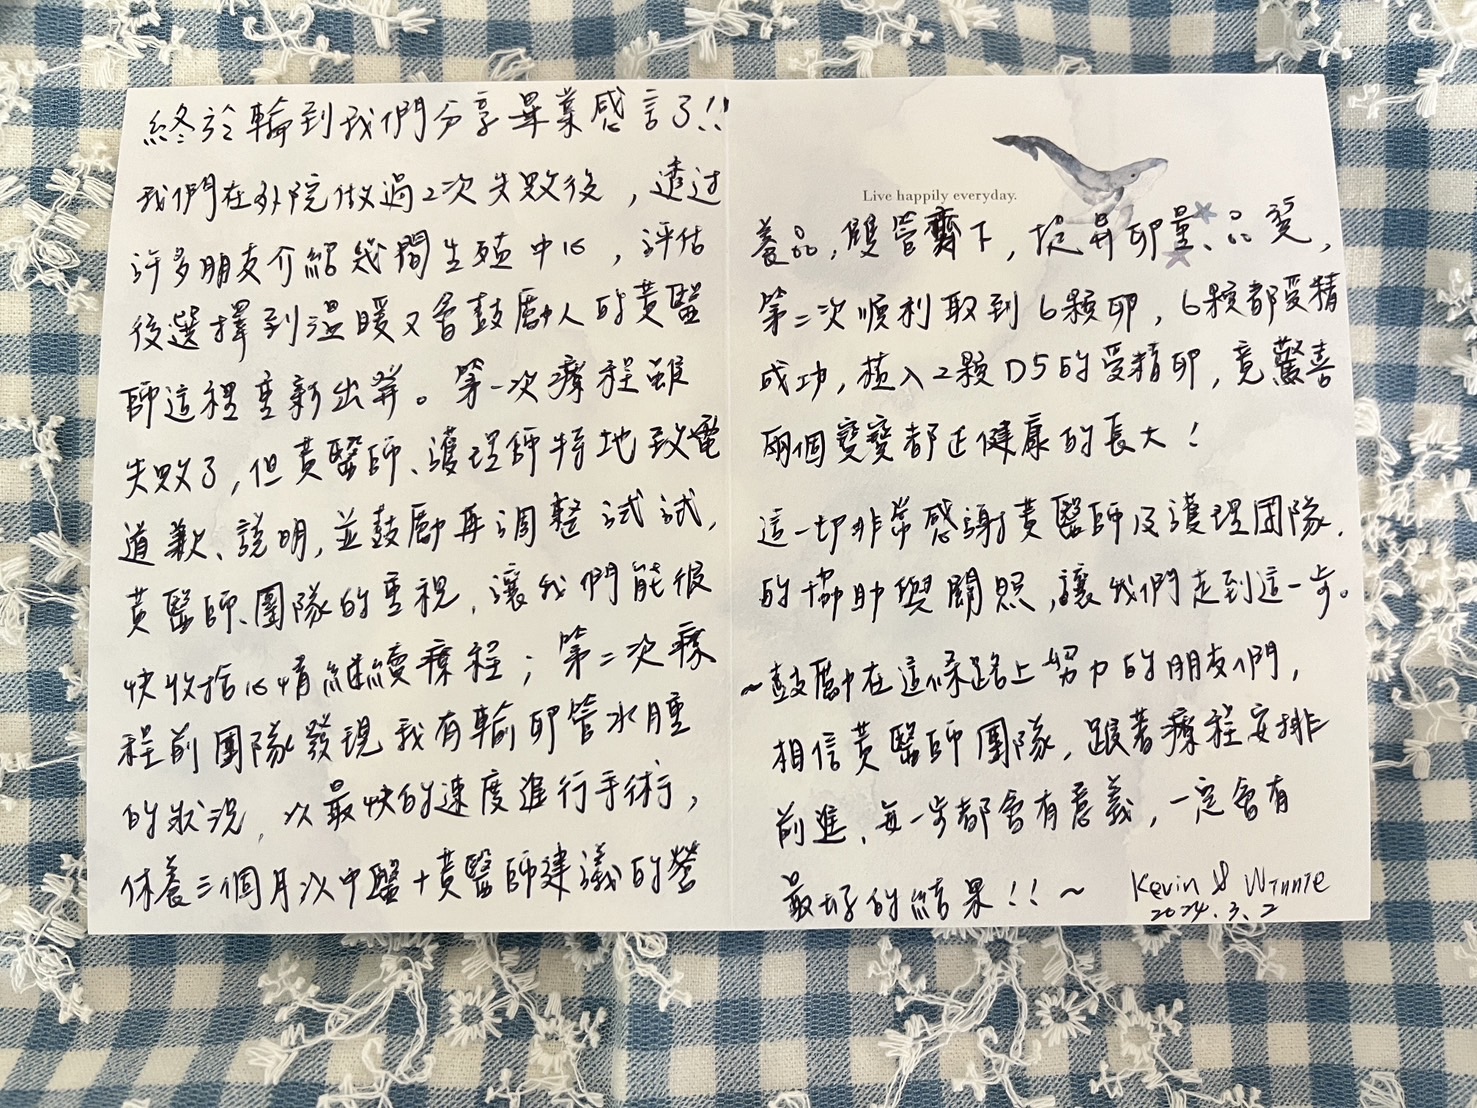 終於輪到我們分享畢業感言了!!
我們在外院做過2次失敗後，透過
許多朋友介紹幾間生殖中心，評估
後選擇到溫暖又會鼓勵人的黃醫
師這裡重新出發。第一次療程雖
失敗了,但黃醫師、護理師特地致電
道歉、說明,並鼓勵再調整試試,
黃醫師、團隊的重視,讓我們能很
快收拾心情繼續療程；第二次療
程前團隊發現我有輸卵管水腫
的狀況,以最快的速度進行手術,
休養三個月以中醫+黃醫師建議的營
Live happily everyday.
養品,雙管齊下,提昇卵量、品質,
第二次順利取到6顆卵,6顆都受精
成功,植入2顆D5的受精卵,竟驚喜
兩個寶寶都正健康的長大!
這一切非常感謝黃醫師及護理團隊,
的協助與關照,讓我們走到這一步。
~鼓勵在這條路上努力的朋友們,
相信黃醫師團隊,跟著療程安排
前進,每一步都會有意義,一定會有
最好的結果!!~
Kevin & Winnie
2024.3.2